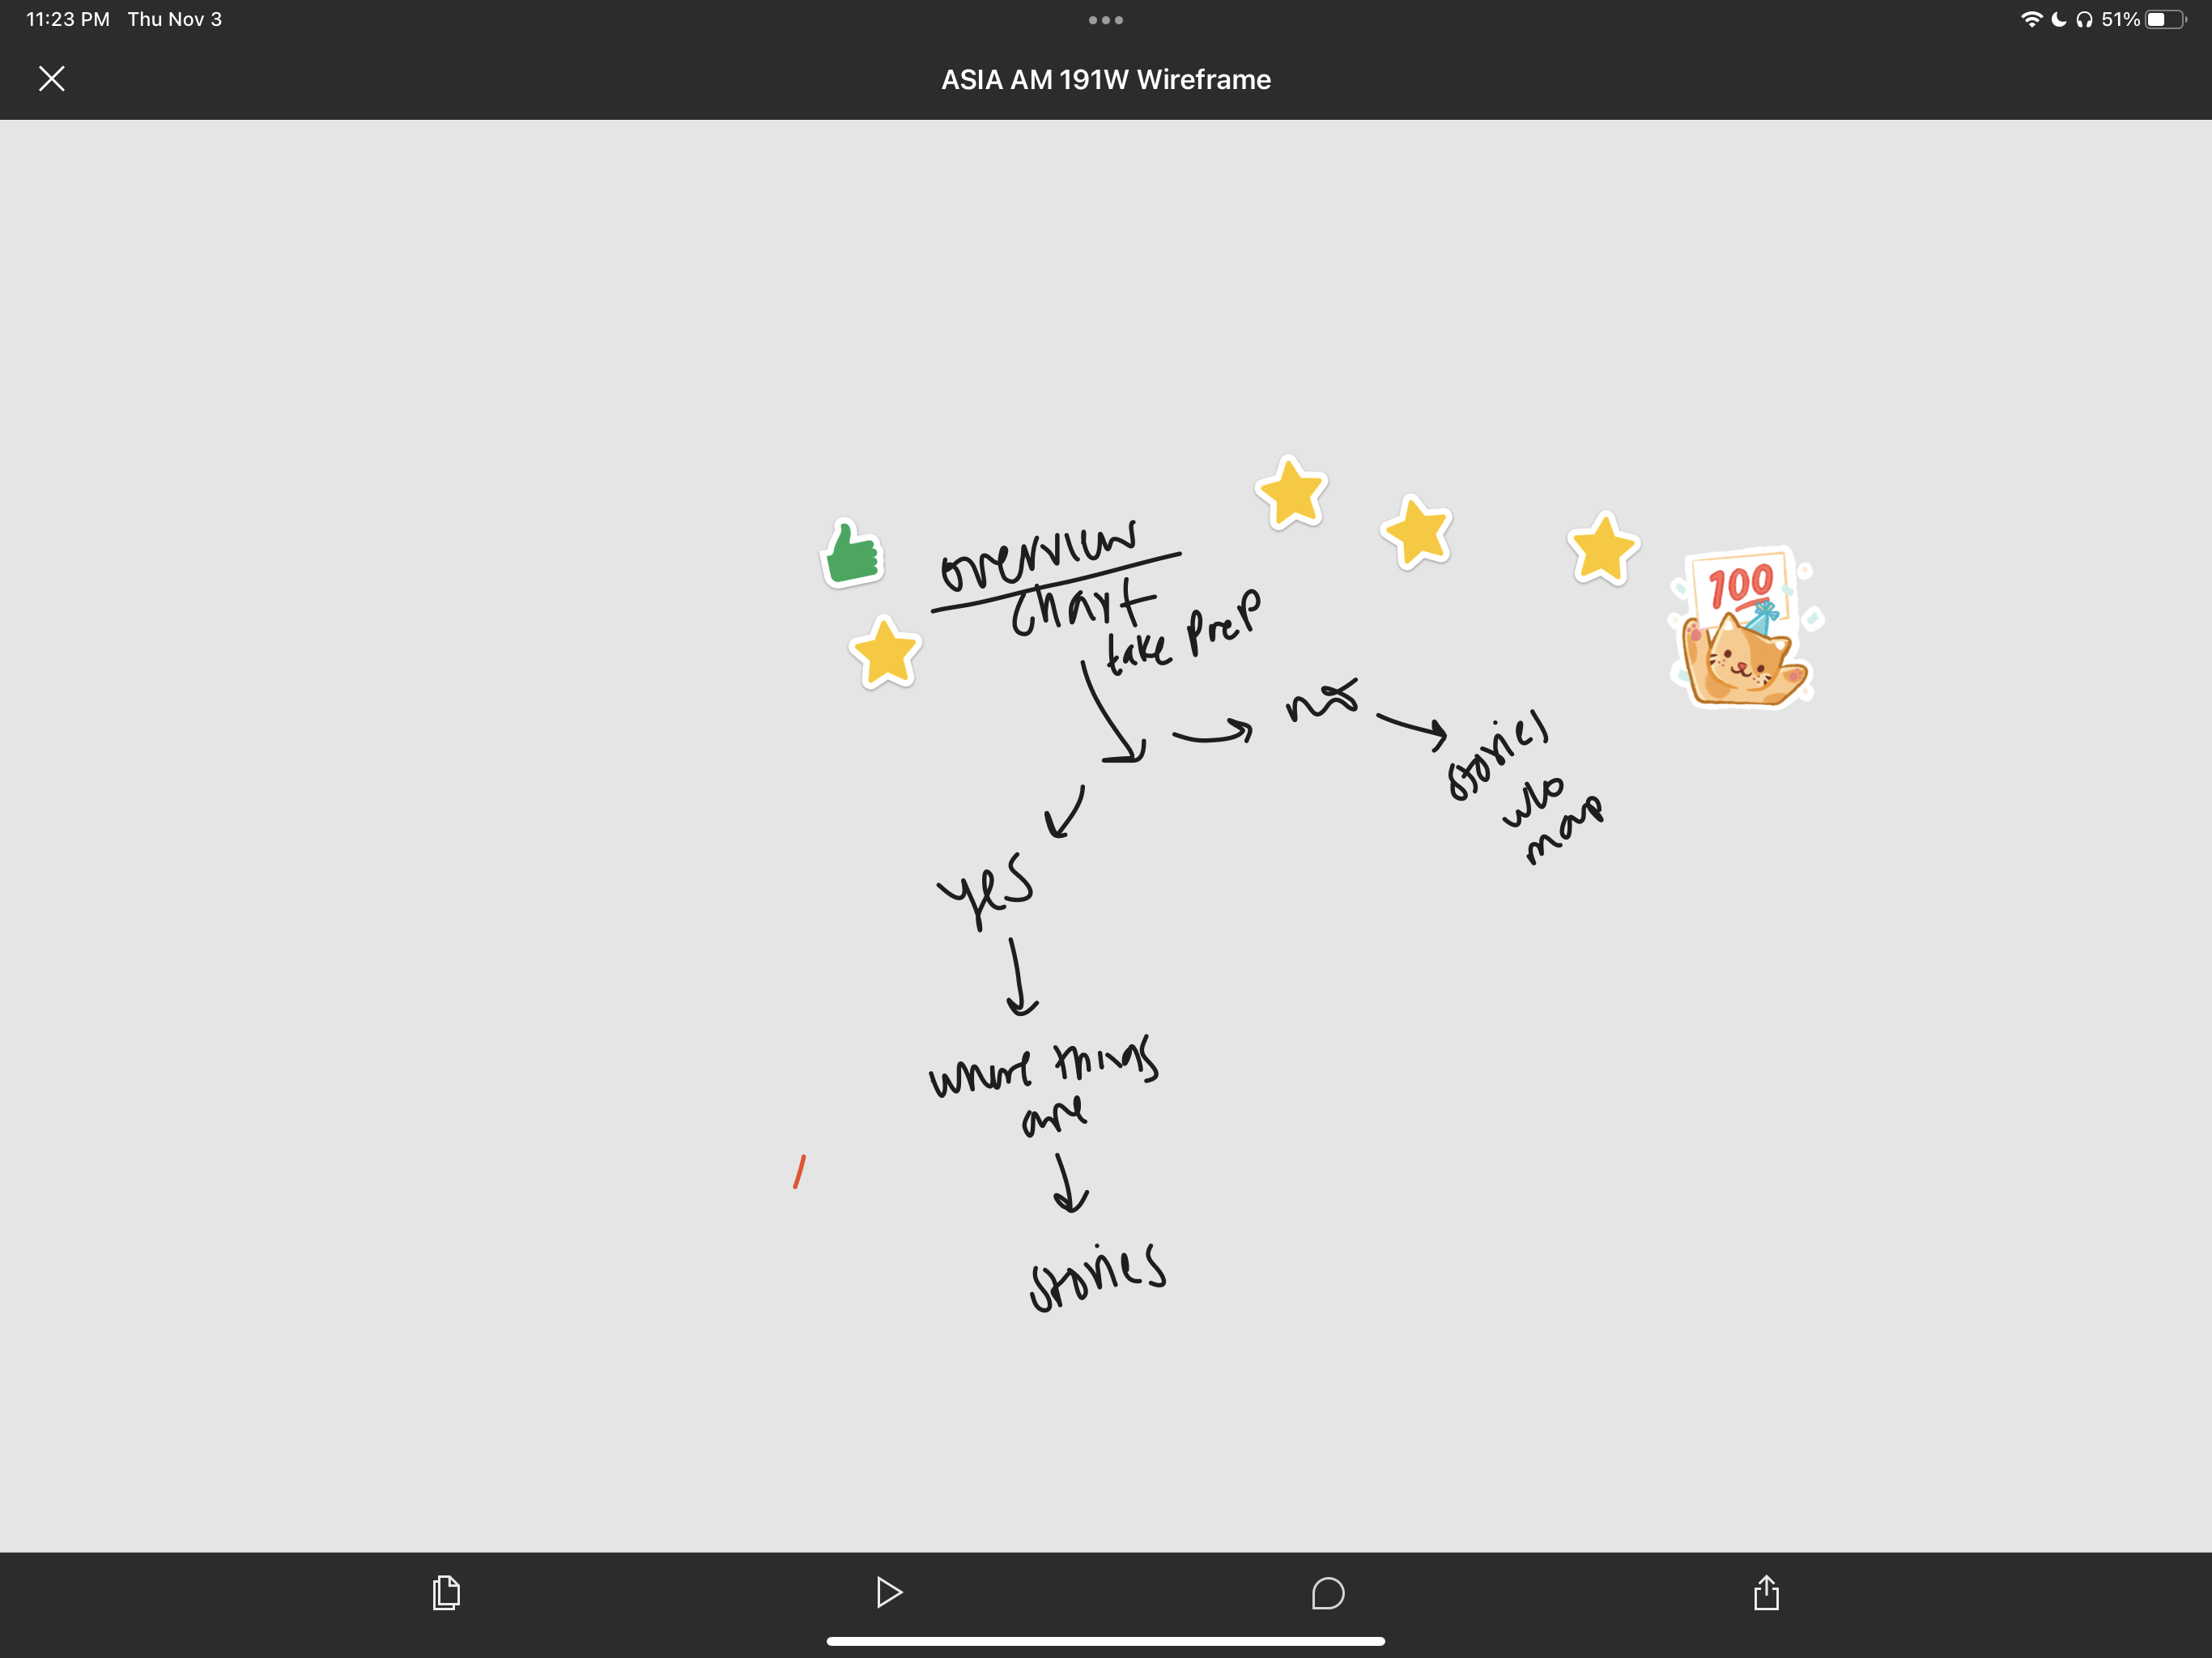 11:23 PM Thu Nov 3
51%
ASIA AM 191W Wireframe
overview
chart
take prep
no
stories
w/o
map
100
yes
where things
are
stories